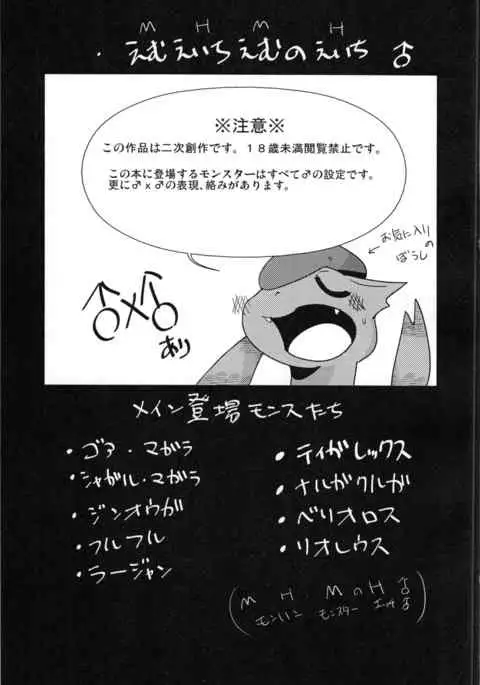 M H M H
・えむえいちえむのえいち ♂
※注意※
この作品は二次創作です。１８歳未満閲覧禁止です。
この本に登場するモンスターはすべて♂の設定です。
更に♂ｘ♂の表現、絡みがあります。
お気に入り
の
ぼうし
♂×♂
あり
メイン登場モンスたち
・ゴア・マガラ
・シャガル・マガラ
・ジンオウガ
・フルフル
・ラージャン
・ティガレックス
・ナルガクルガ
・ベリオロス
・リオレウス
(M H・MのH ♂
モンハン モンスター エッチ ♂)